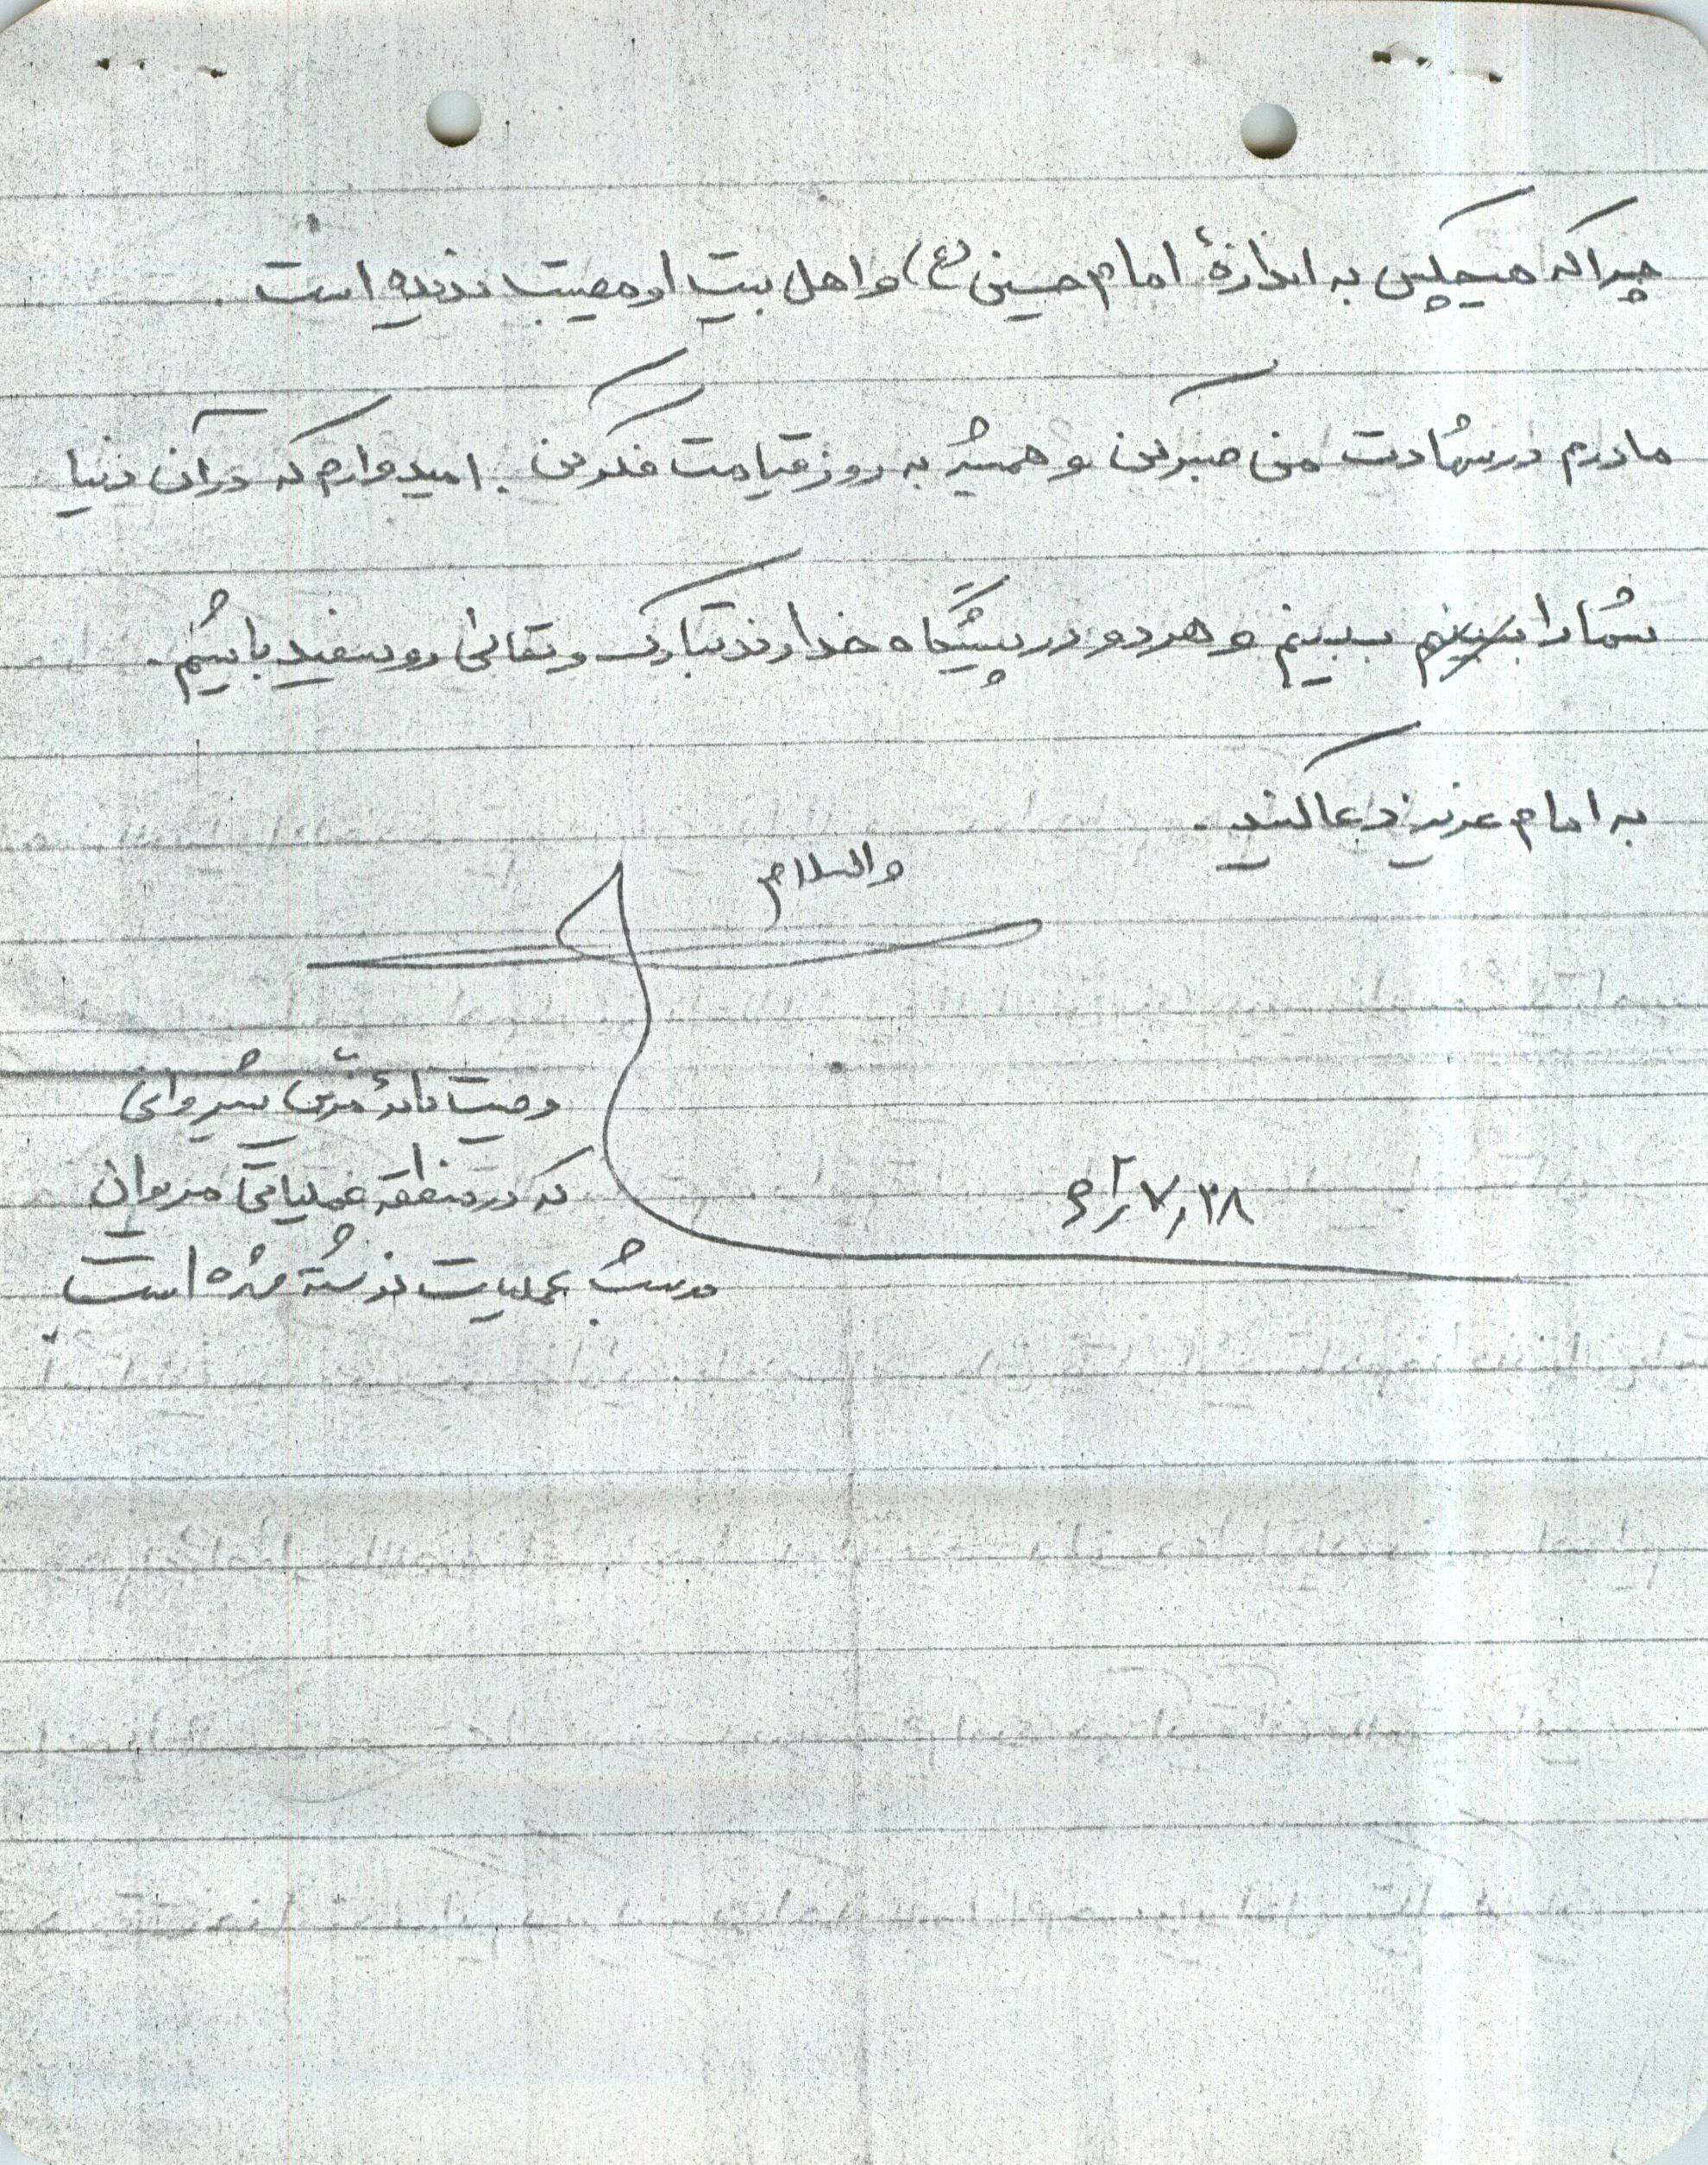 چرا که هیچکس به اندازهٔ امام حسین (ع) و اهل بیت او مصیبت ندیده است .
مادرم در شهادت من صبر کن و همیشه به روز قیامت فکر کن . امیدوارم که در آن دنیا
شما را ببینم و هر دو در پیشگاه خداوند تبارک و تعالی رو سفید باشیم .
به امام عزیز دعا کنید .
والسلام
وصیت نامهٔ شیروانی
که در منطقه عملیاتی مریوان
در شب عملیات نوشته شده است